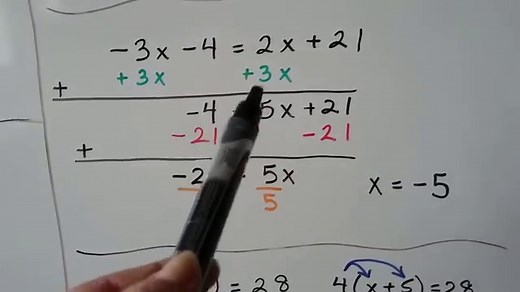 -3x -4 = 2x +21
+3x +3x
+
-4 5x +21
-21 -21
+
-2 5x
5
x = -5
) = 28 4(x+5) = 28